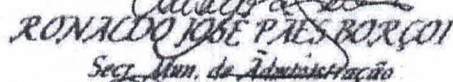 RONALDO JOSÉ PAES BORÇOI
Secr. Mun. de Administração